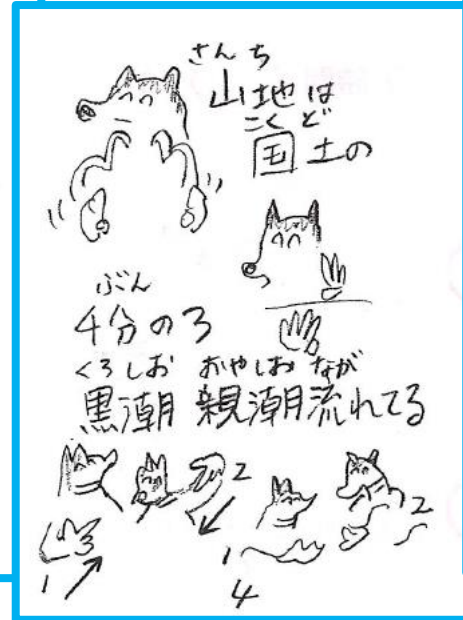 さんち
山地は
こくど
国土の
ぶん
4分の3
くろしお おやしお なが
黒潮 親潮流れてる
2
2
1 1
4